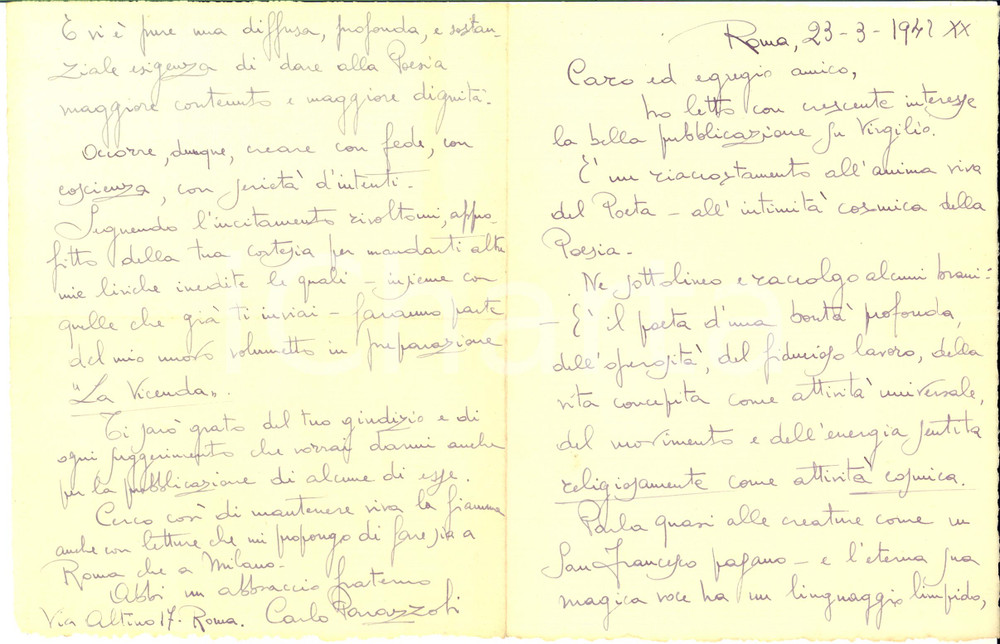 Roma, 23-3-1942 XX
Caro ed egregio amico,
ho letto con crescente interesse
la bella pubblicazione su Virgilio.
E' un riaccostamento all'anima viva
del Poeta – all'intimità cosmica della
Poesia.
Ne sottolineo e raccolgo alcuni brani:
– E' il poeta d'una bontà profonda,
dell'operosità, del fiducioso lavoro, della
vita concepita come attività universale,
del movimento e dell'energia sentita
religiosamente come attività cosmica.
Parla quasi alle creature come un
San Francesco pagano – e l'eterna sua
magica voce ha un linguaggio limpido,
E vi è pure una diffusa, profonda, e sostan-
ziale esigenza di dare alla Poesia
maggiore contenuto e maggiore dignità.
Occorre, dunque, creare con fede, con
coscienza, con serietà d'intenti.
Seguendo l'incitamento rivoltomi, appro-
fitto della tua cortesia per mandarti altre
mie liriche inedite le quali – insieme con
quelle che già ti inviai – faranno parte
del mio nuovo volumetto in preparazione
"La Vicenda".
Ti sarò grato del tuo giudizio e di
ogni suggerimento che vorrai darmi anche
per la pubblicazione di alcune di esse.
Cerco così di mantenere viva la fiamma
anche con letture che mi propongo di fare sia a
Roma che a Milano.
Abbi un abbraccio fraterno
Via Altino 17. Roma. Carlo Parazzoli
iCharta